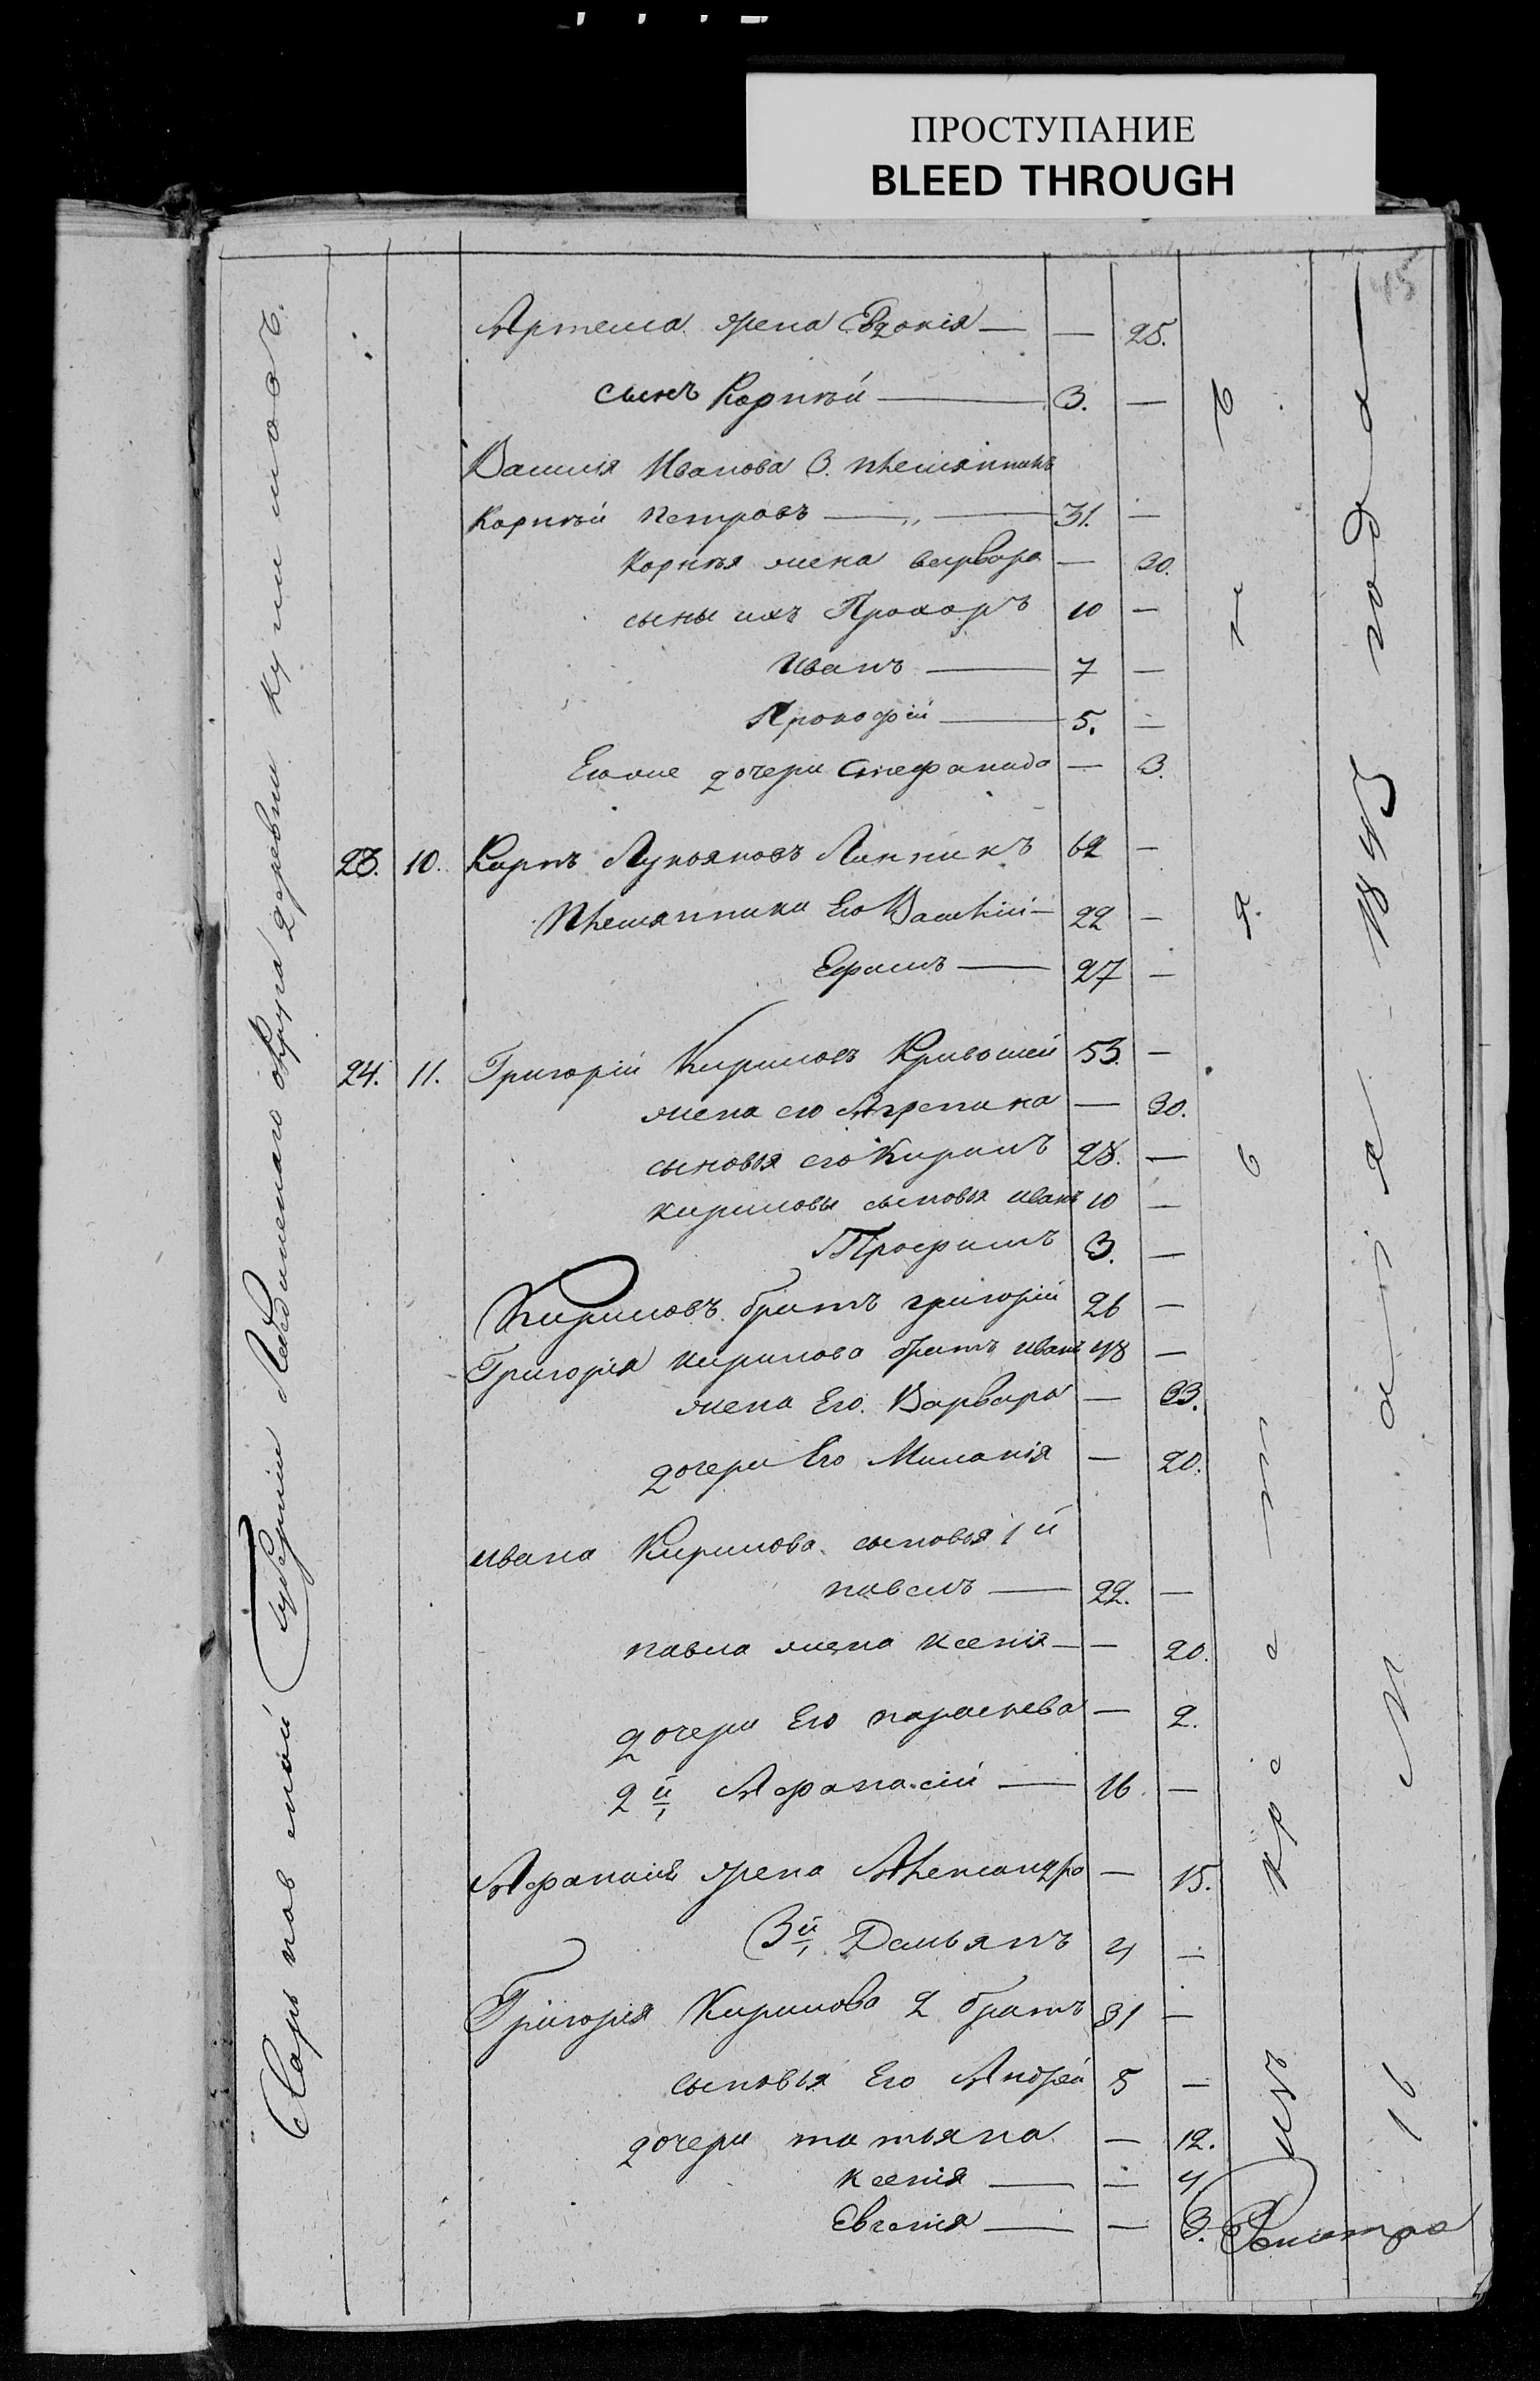 ПРОСТУПАНИЕ
BLEED THROUGH
45
Артема жена Евдокія — — 25.
сынъ Корнѣй — 3. —
Василія Иванова 3. племянникъ
Корнѣй Петровъ — „ — 31. —
Корнѣя жена варвара — 30.
сыны ихъ Прохоръ 10 —
Иванъ — 7 —
Прокофій — 5. —
Егоже дочери Стефанида — 3.
23. 10. Карпъ Лукьяновъ Линникъ 62 —
Племянники Его Василій — 22 —
Ефимъ — 27 —
24. 11. Григорій Кириловъ Кривошей 53. —
жена его Агрепина — 30.
сыновья его Кирилъ 28. —
кириловы сыновья иванъ 10 —
Трофимъ 3. —
Кириловъ братъ григорій 26 —
Григорія кирилова братъ иванъ 48 —
жена Его Варвара — 33.
дочери Его Миланія — 20.
ивана Кирилова сыновья 1й
павелъ — 22. —
павла жена ксенія — — 20.
дочери Его параскева — 2.
2й Афанасій — 16 —
Афанасія жена Александра — 15.
3й Демьянъ 4 —
Григорія Кирилова 2 братъ 31 —
сыновья Его Андрей 5 —
дочери татьяна — 12.
ксенія — — 4
Евгенія — — 3.
Губерніи Лебединскаго округа деревни
изъ крестьянъ
16 Маія 1843 года